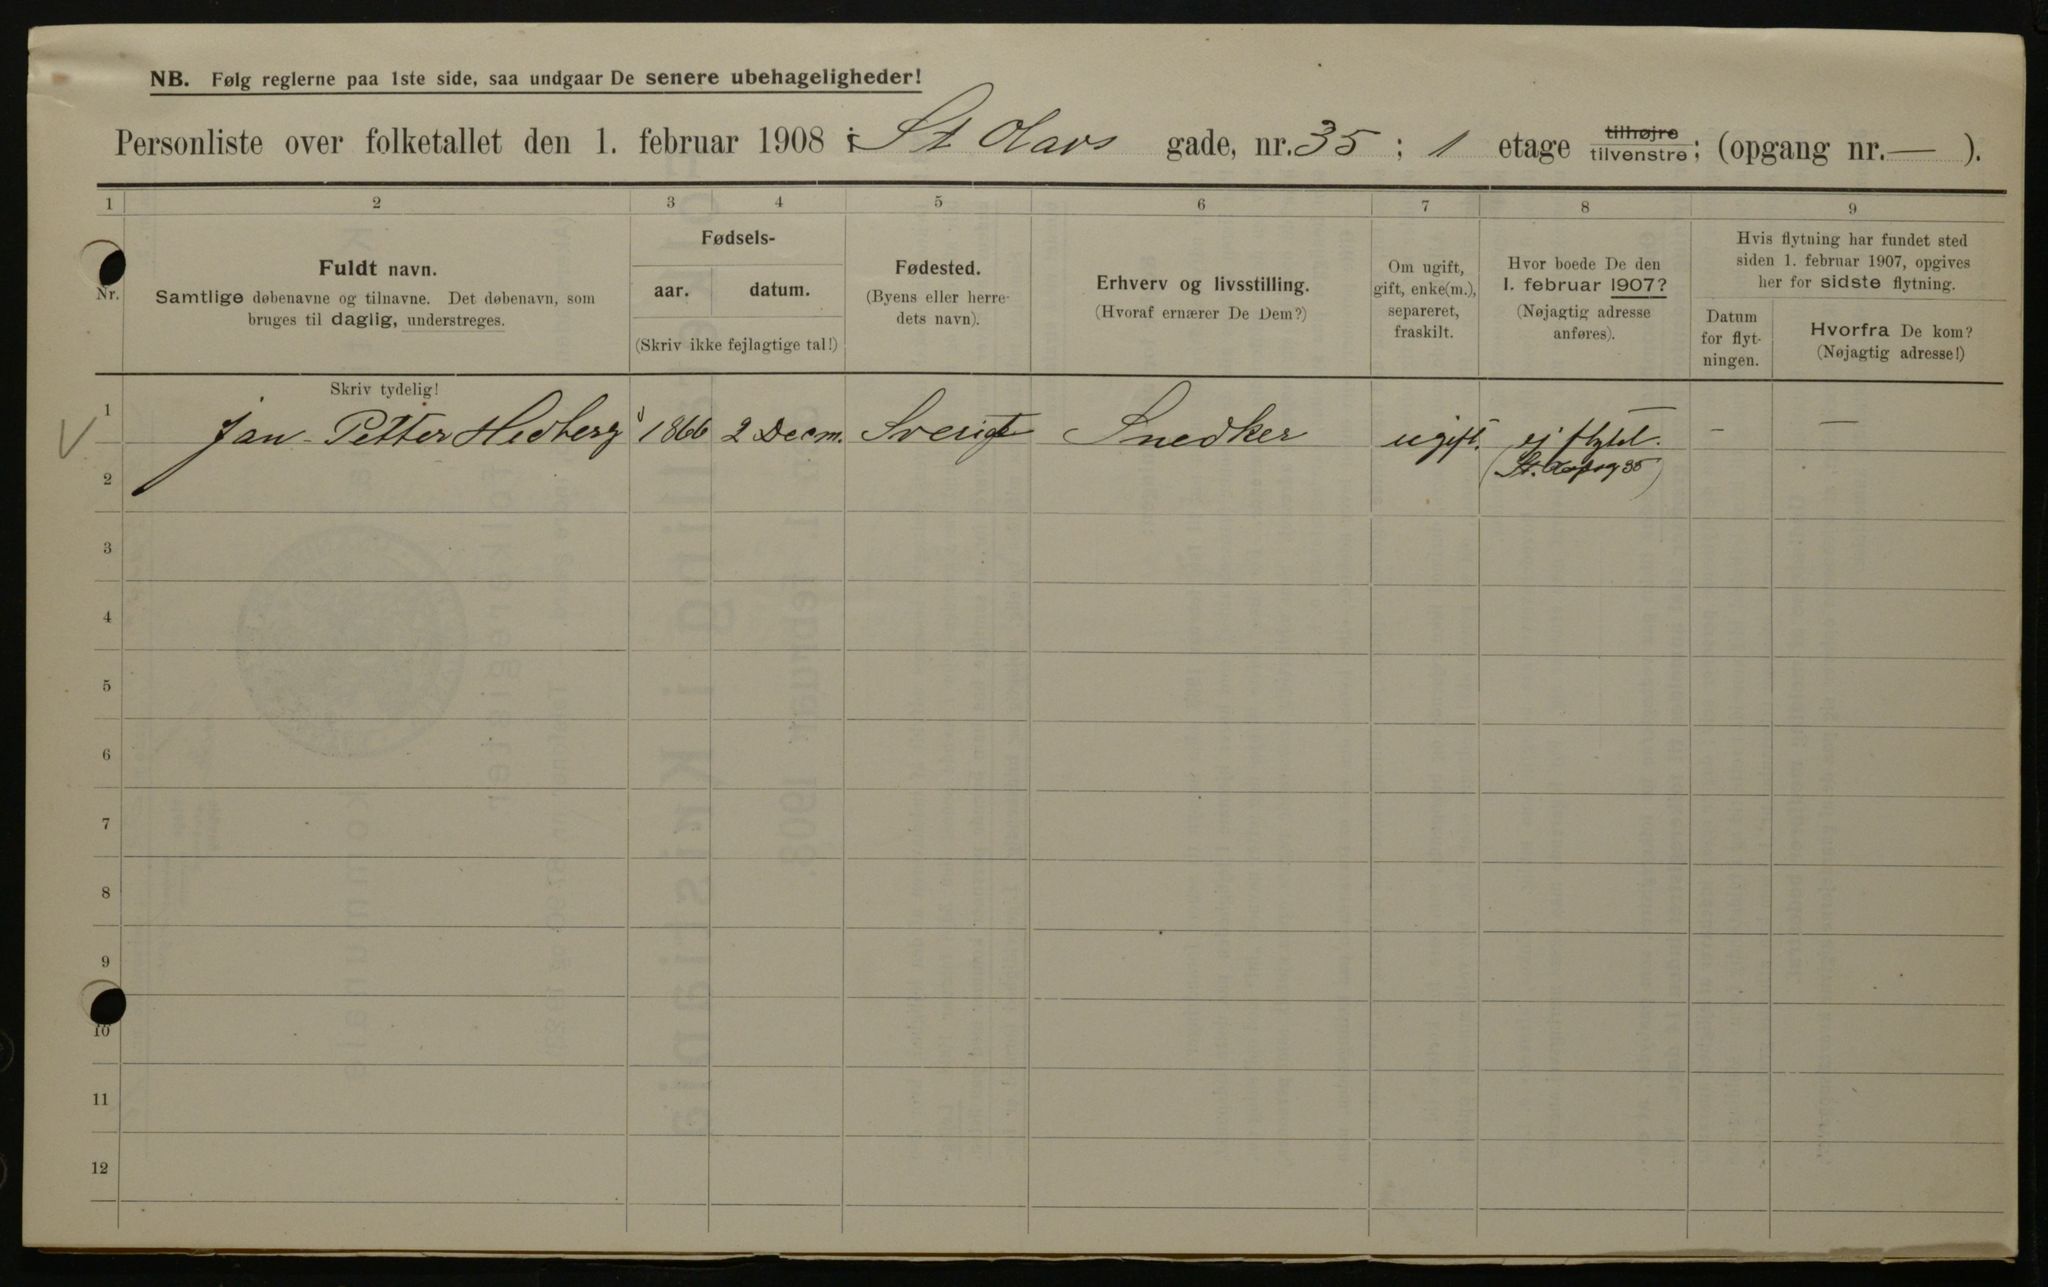 NB. Følg reglerne paa 1ste side, saa undgaar De senere ubehageligheder!
Personliste over folketallet den 1. februar 1908 i St Olavs gade, nr. 35 ; 1 etage tilhøjre tilvenstre; (opgang nr. — ).
1 2 3 4 5 6 7 8 9
Nr.
Fuldt navn.
Samtlige døbenavne og tilnavne. Det døbenavn, som
bruges til daglig, understreges.
Fødsels-
aar. datum.
(Skriv ikke fejlagtige tal!)
Fødested.
(Byens eller herre-
dets navn).
Erhverv og livsstilling.
(Hvoraf ernærer De Dem?)
Om ugift,
gift, enke(m.),
separeret,
fraskilt.
Hvor boede De den
1. februar 1907?
(Nøjagtig adresse
anføres).
Hvis flytning har fundet sted
siden 1. februar 1907, opgives
her for sidste flytning.
Datum
for flyt-
ningen.
Hvorfra De kom?
(Nøjagtig adresse!)
Skriv tydelig!
1 Jan-Petter Hedberg 1866 2 Decm. Sverige Snedker ugift. ej flytet. — —
2 (St. 35)
3
4
5
6
7
8
9
10
11
12